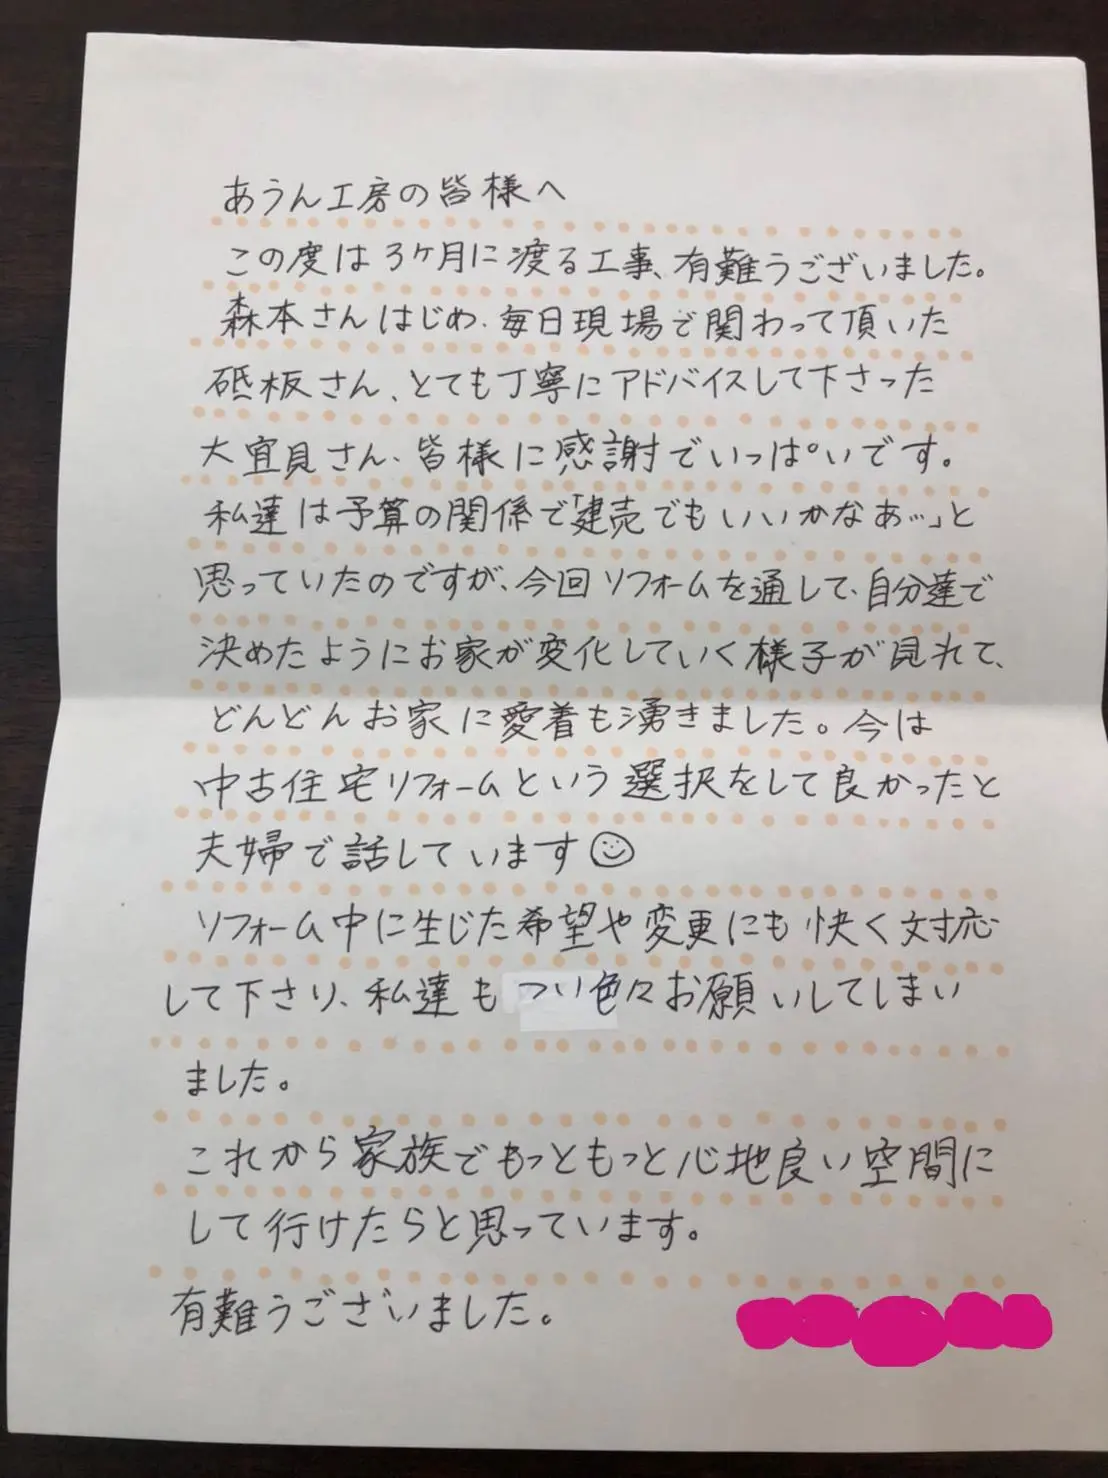 あうん工房の皆様へ
この度は3ケ月に渡る工事、有難うございました。
森本さんはじめ、毎日現場で関わって頂いた
砥板さん、とても丁寧にアドバイスして下さった
大宜見さん、皆様に感謝でいっぱいです。
私達は予算の関係で「建売でもいいかなあ…」と
思っていたのですが、今回リフォームを通して、自分達で
決めたようにお家が変化していく様子が見れて、
どんどんお家に愛着も湧きました。今は
中古住宅リフォームという選択をして良かったと
夫婦で話しています☺
リフォーム中に生じた希望や変更にも快く対応
して下さり、私達もつい色々お願いしてしまい
ました。
これから家族でもっともっと心地良い空間に
して行けたらと思っています。
有難うございました。